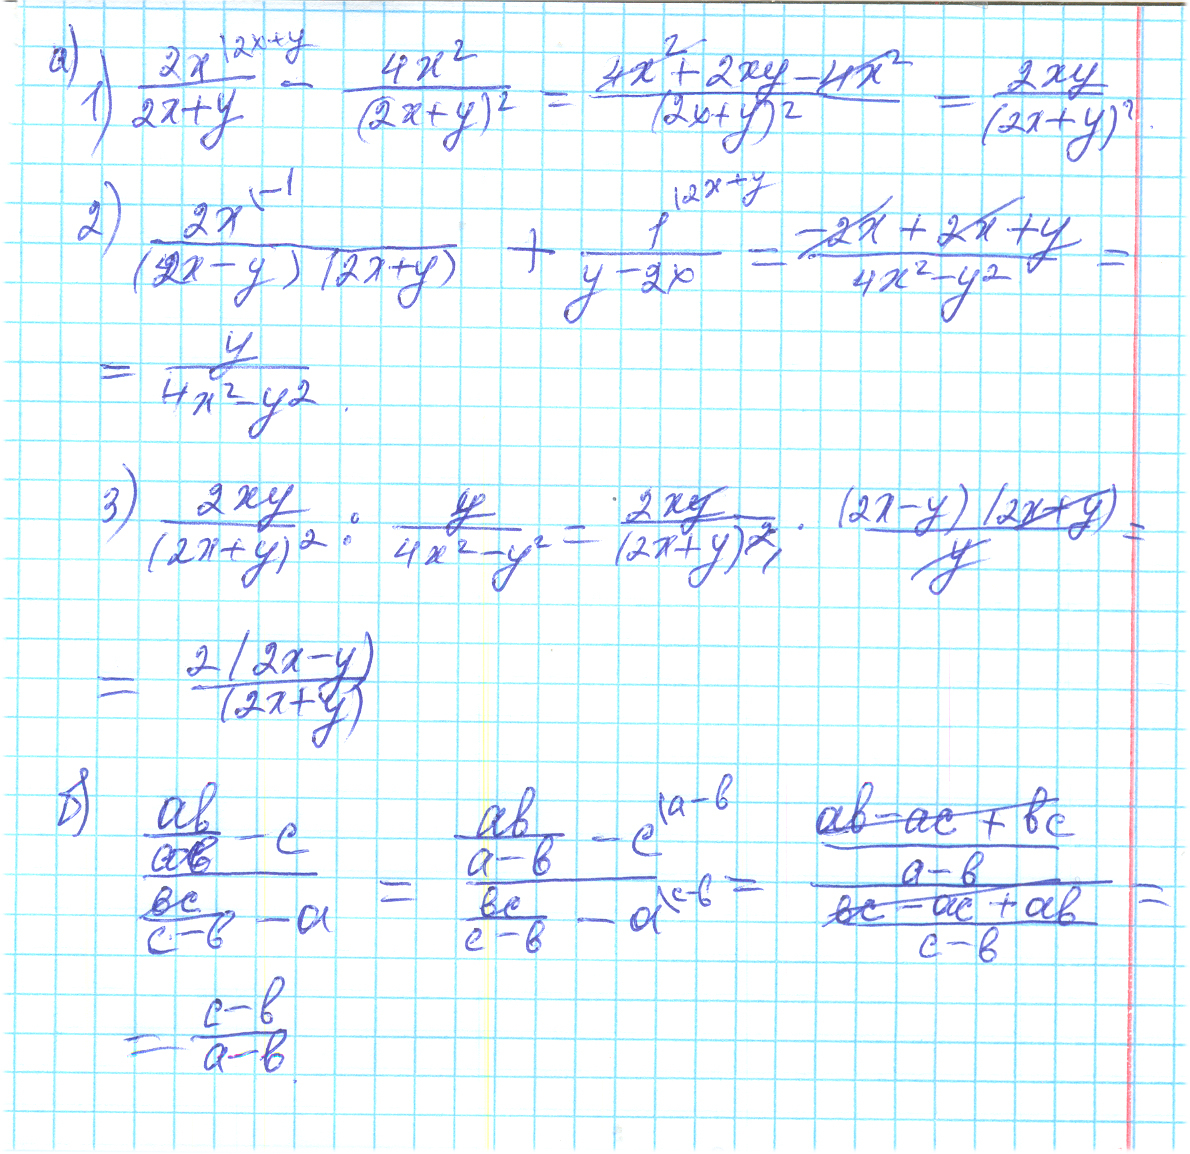 а)
1) \frac{2x^{\backslash 2x+y}}{2x+y} - \frac{4x^2}{(2x+y)^2} = \frac{4x^2+2xy-4x^2}{(2x+y)^2} = \frac{2xy}{(2x+y)^2}.
2) \frac{2x^{\backslash -1}}{(2x-y)(2x+y)} + \frac{1^{\backslash 2x+y}}{y-2x} = \frac{-2x+2x+y}{4x^2-y^2} =
= \frac{y}{4x^2-y^2}.
3) \frac{2xy}{(2x+y)^2} : \frac{y}{4x^2-y^2} = \frac{2xy}{(2x+y)^2} \cdot \frac{(2x-y)(2x+y)}{y} =
= \frac{2(2x-y)}{(2x+y)}
б) \frac{\frac{ab}{a-b}-c}{\frac{bc}{c-b}-a} = \frac{\frac{ab}{a-b}-c^{\backslash a-b}}{\frac{bc}{c-b}-a^{\backslash c-b}} = \frac{\frac{ab-ac+bc}{a-b}}{\frac{bc-ac+ab}{c-b}} =
= \frac{c-b}{a-b}.